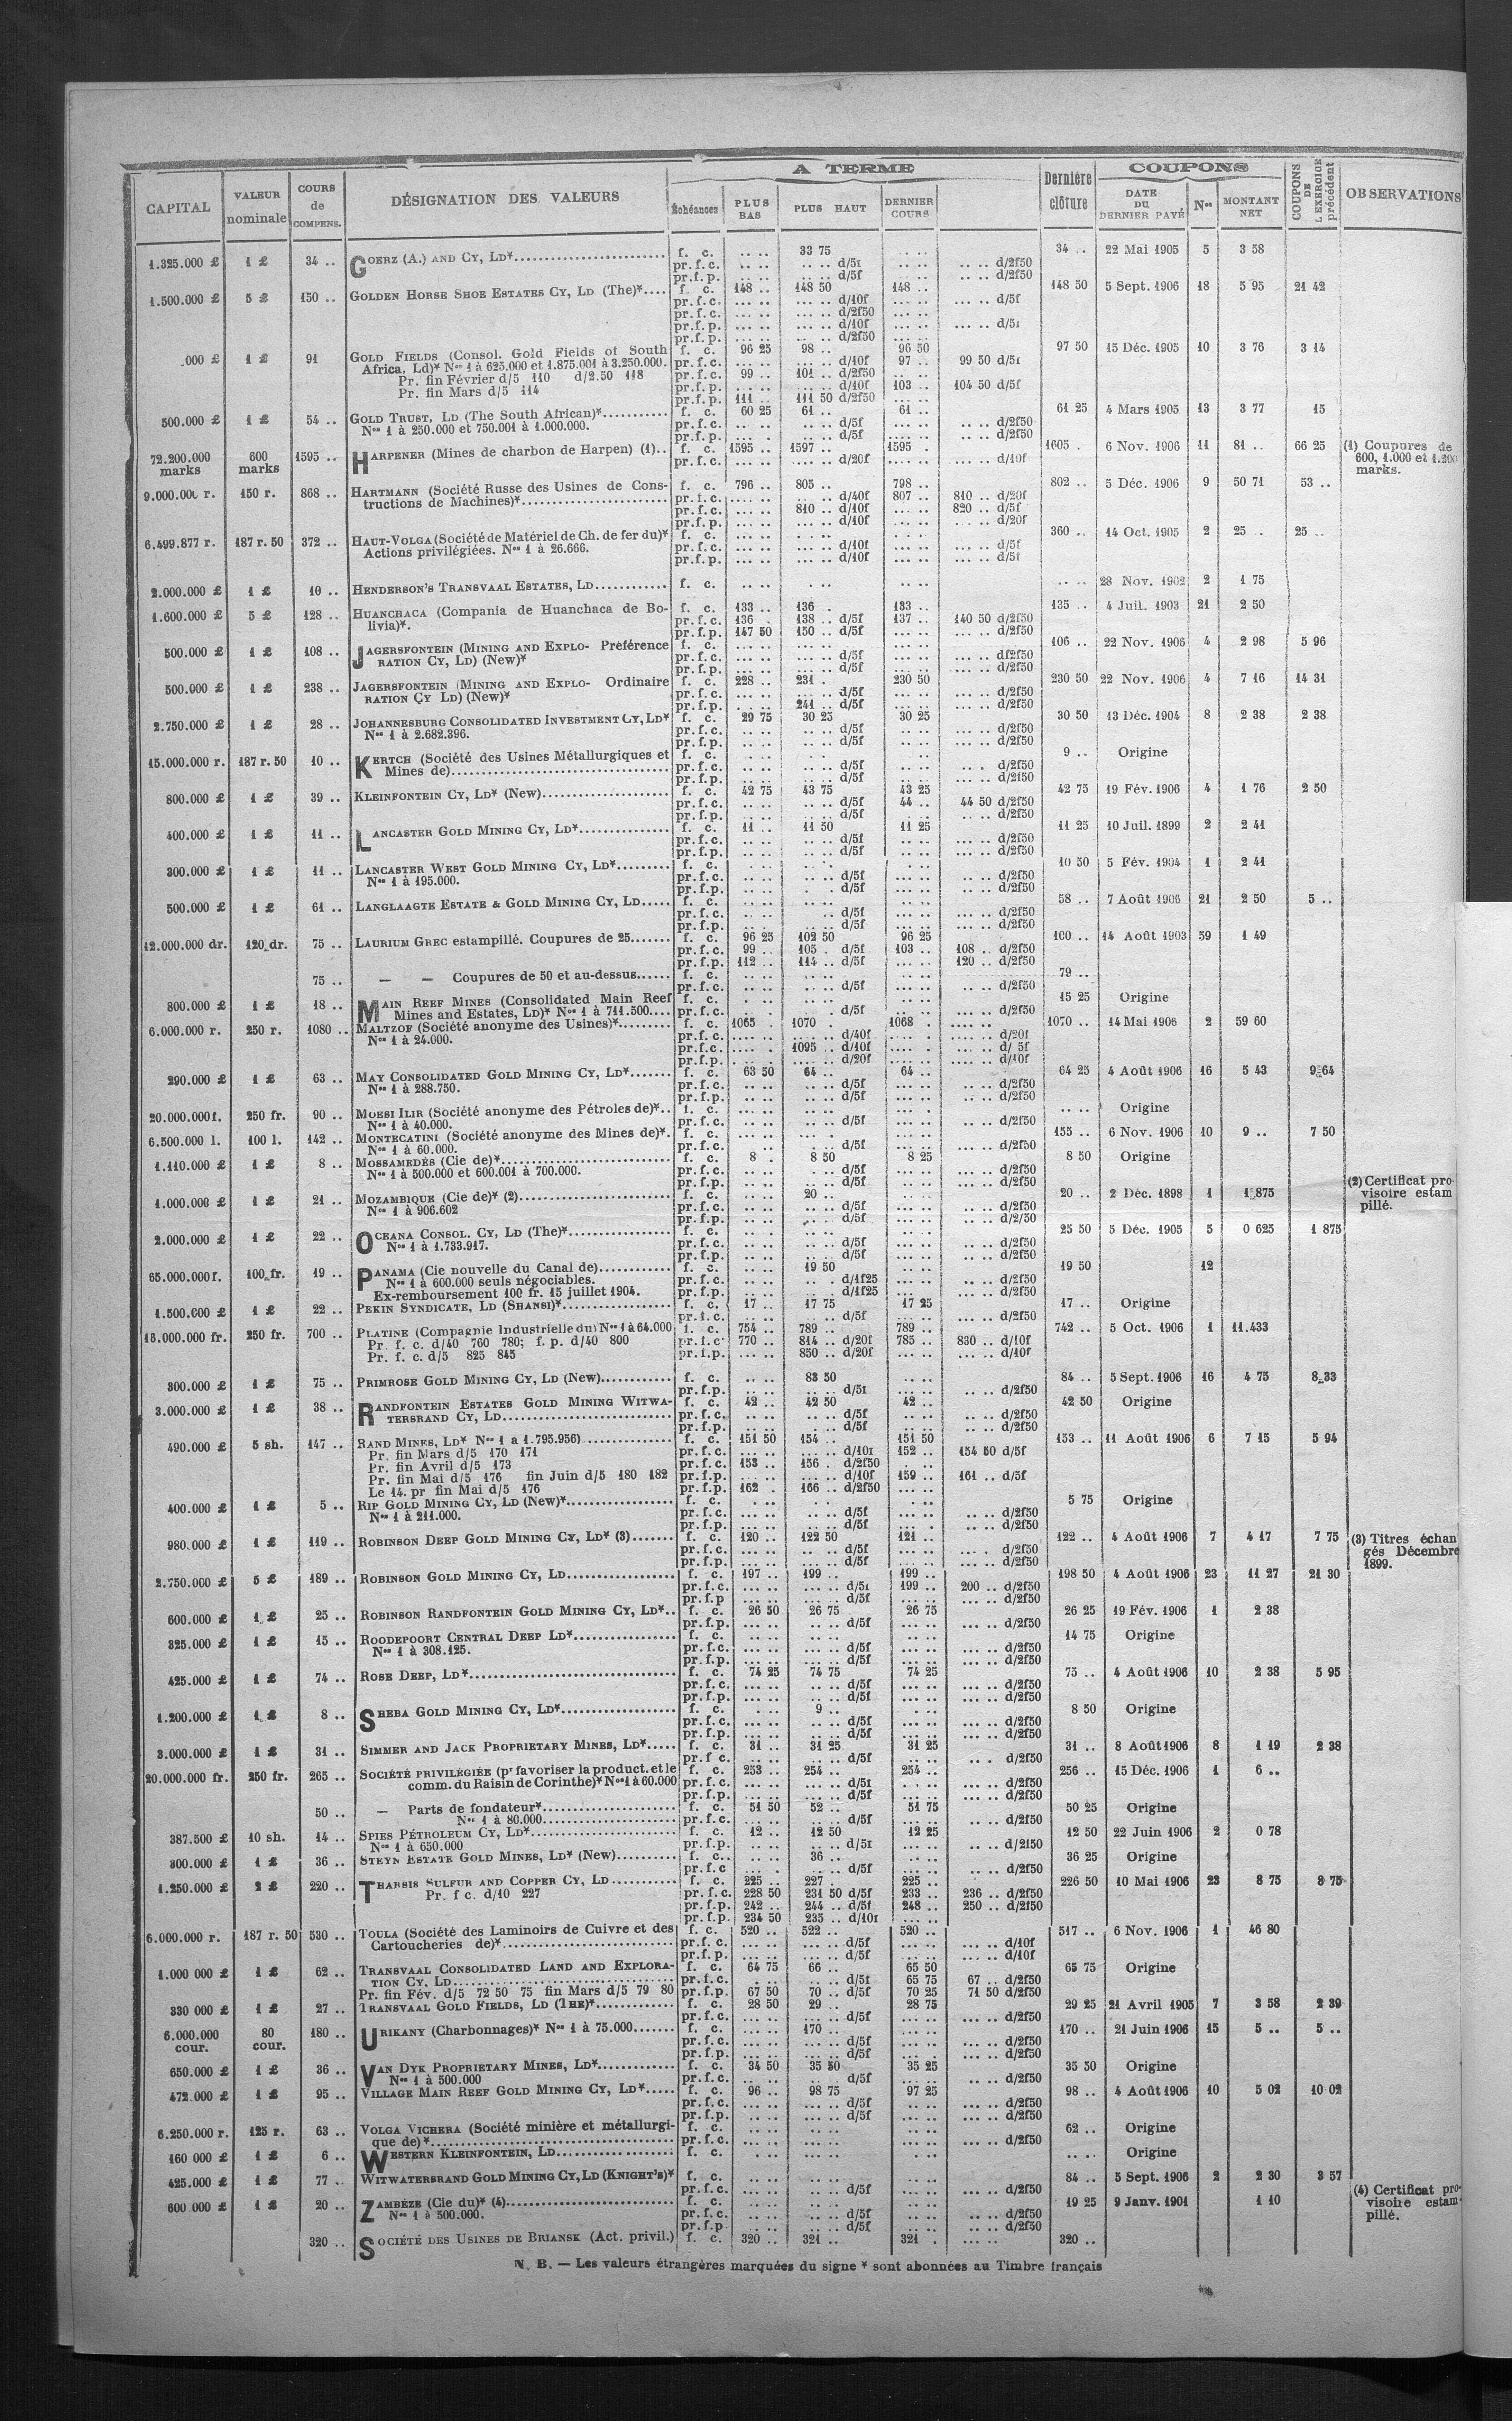 A TERME
COUPONS
CAPITAL | VALEUR nominale | COURS de COMPENS. | DÉSIGNATION DES VALEURS | Échéances | PLUS BAS | PLUS HAUT | DERNIER COURS | Dernière clôture | DATE DU DERNIER PAYÉ | Nos | MONTANT NET | COUPONS DE L'EXERCICE précédent | OBSERVATIONS
1.325.000 £ | 1 £ | 34 .. | GOERZ (A.) AND CY, LD* | f. c. | .. .. | 33 75 | .. .. | 34 .. | 22 Mai 1905 | 5 | 3 58
pr.f.c. .. .. .. .. d/5f .. .. .. .. d/2f50
pr.f.p. .. .. .. .. d/5f .. .. .. .. d/2f50
1.500.000 £ | 5 £ | 150 .. | GOLDEN HORSE SHOE ESTATES CY, LD (The)* | f. c. | 148 .. | 148 50 | 148 .. | 148 50 | 5 Sept. 1906 | 18 | 5 95 | 21 42
pr.f.c. d/10f d/5f
pr.f.c. d/2f50
pr.f.p. d/10f d/5f
pr.f.p. d/2f50
.000 £ | 1 £ | 91 | GOLD FIELDS (Consol. Gold Fields of South | f. c. | 96 25 | 98 .. | 96 50 | 97 50 | 15 Déc. 1905 | 10 | 3 76 | 3 14
Africa, Ld)* Nos 1 à 625.000 et 1.875.001 à 3.250.000. pr.f.c. d/10f 97 .. 99 50 d/5f
Pr. fin Février d/5 110 d/2.50 118 pr.f.c. 99 .. 101 .. d/2f50
Pr. fin Mars d/5 114 pr.f.p. d/10f 103 .. 104 50 d/5f
pr.f.p. 111 .. 111 50 d/2f50
500.000 £ | 1 £ | 54 .. | GOLD TRUST, LD (The South African)* | f. c. | 60 25 | 61 .. | 61 .. | 61 25 | 4 Mars 1905 | 13 | 3 77 | 15
Nos 1 à 250.000 et 750.001 à 1.000.000. pr.f.c. d/5f d/2f50
pr.f.p. d/5f d/2f50
72.200.000 marks | 600 marks | 1595 .. | HARPENER (Mines de charbon de Harpen) (1).. | f. c. | 1595 .. | 1597 .. | 1595 . | 1605 . | 6 Nov. 1906 | 11 | 81 .. | 66 25 | (1) Coupures de 600, 1.000 et 1.200 marks.
pr.f.c. d/20f d/10f
9.000.000 r. | 150 r. | 868 .. | HARTMANN (Société Russe des Usines de Cons- | f. c. | 796 .. | 805 .. | 798 .. | 802 .. | 5 Déc. 1906 | 9 | 50 71 | 53 ..
tructions de Machines)* pr.f.c. d/40f 807 .. 810 .. d/20f
pr.f.c. 810 .. d/10f 820 .. d/5f
pr.f.p. d/10f d/20f
6.499.877 r. | 187 r. 50 | 372 .. | HAUT-VOLGA (Société de Matériel de Ch. de fer du)* | f. c. | 360 .. | 14 Oct. 1905 | 2 | 25 . | 25 ..
Actions privilégiées. Nos 1 à 26.666. pr.f.c. d/10f d/5f
pr.f.p. d/10f d/5f
2.000.000 £ | 1 £ | 10 .. | HENDERSON'S TRANSVAAL ESTATES, LD | f. c. | .. .. | 28 Nov. 1902 | 2 | 1 75
1.600.000 £ | 5 £ | 128 .. | HUANCHACA (Compania de Huanchaca de Bo- | f. c. | 133 .. | 136 . | 133 .. | 135 .. | 4 Juil. 1903 | 21 | 2 50
livia)*. pr.f.c. 136 . 138 .. d/5f 137 .. 140 50 d/2f50
pr.f.p. 147 50 150 .. d/5f d/2f50
500.000 £ | 1 £ | 108 .. | JAGERSFONTEIN (MINING AND EXPLO- Préférence | f. c. | 106 .. | 22 Nov. 1906 | 4 | 2 98 | 5 96
RATION CY, LD) (New)* pr.f.c. d/5f df2f50
pr.f.p. d/5f d/2f50
500.000 £ | 1 £ | 238 .. | JAGERSFONTEIN (MINING AND EXPLO- Ordinaire | f. c. | 228 .. | 231 . | 230 50 | 230 50 | 22 Nov. 1906 | 4 | 7 16 | 14 31
RATION CY LD) (New)* pr.f.c. d/5f d/2f50
pr.f.p. 241 .. d/5f d/2f50
2.750.000 £ | 1 £ | 28 .. | JOHANNESBURG CONSOLIDATED INVESTMENT CY, LD* | f. c. | 29 75 | 30 25 | 30 25 | 30 50 | 13 Déc. 1904 | 8 | 2 38 | 2 38
Nos 1 à 2.682.396. pr.f.c. d/5f d/2f50
pr.f.p. d/5f d/2f50
15.000.000 r. | 187 r. 50 | 10 .. | KERTCH (Société des Usines Métallurgiques et | f. c. | 9 .. | Origine
Mines de) pr.f.c. d/5f d/2f50
pr.f.p. d/5f d/2f50
800.000 £ | 1 £ | 39 .. | KLEINFONTEIN CY, LD* (New) | f. c. | 42 75 | 43 75 | 43 25 | 42 75 | 19 Fév. 1906 | 4 | 1 76 | 2 50
pr.f.c. d/5f 44 .. 44 50 d/2f50
pr.f.p. d/5f d/2f50
400.000 £ | 1 £ | 11 .. | LANCASTER GOLD MINING CY, LD* | f. c. | 11 .. | 11 50 | 11 25 | 11 25 | 10 Juil. 1899 | 2 | 2 41
pr.f.c. d/5f d/2f50
pr.f.p. d/5f d/2f50
300.000 £ | 1 £ | 11 .. | LANCASTER WEST GOLD MINING CY, LD* | f. c. | 10 50 | 5 Fév. 1904 | 1 | 2 41
Nos 1 à 195.000. pr.f.c. d/5f d/2f50
pr.f.p. d/5f d/2f50
500.000 £ | 1 £ | 61 .. | LANGLAAGTE ESTATE & GOLD MINING CY, LD | f. c. | 58 .. | 7 Août 1906 | 21 | 2 50 | 5 ..
pr.f.c. d/5f d/2f50
pr.f.p. d/5f d/2f50
12.000.000 dr. | 120 dr. | 75 .. | LAURIUM GREC estampillé. Coupures de 25 | f. c. | 96 25 | 102 50 | 96 25 | 100 .. | 14 Août 1903 | 59 | 1 49
pr.f.c. 99 .. 105 . d/5f 103 .. 108 .. d/2f50
pr.f.p. 112 .. 114 .. d/5f 120 .. d/2f50
75 .. | — — Coupures de 50 et au-dessus | f. c. | 79 ..
pr.f.c. d/5f d/2f50
800.000 £ | 1 £ | 18 .. | MAIN REEF MINES (Consolidated Main Reef | f. c. | 15 25 | Origine
Mines and Estates, LD)* Nos 1 à 711.500 pr.f.c. d/5f d/2f50
6.000.000 r. | 250 r. | 1080 .. | MALTZOF (Société anonyme des Usines)* | f. c. | 1065 . | 1070 . | 1068 . | 1070 .. | 14 Mai 1906 | 2 | 59 60
Nos 1 à 24.000. pr.f.c. d/40f d/20f
pr.f.c. 1095 .. d/10f d/5f
pr.f.p. d/20f d/10f
290.000 £ | 1 £ | 63 .. | MAY CONSOLIDATED GOLD MINING CY, LD* | f. c. | 63 50 | 64 .. | 64 .. | 64 25 | 4 Août 1906 | 16 | 5 43 | 9 64
Nos 1 à 288.750. pr.f.c. d/5f d/2f50
pr.f.p. d/5f d/2f50
20.000.000 f. | 250 fr. | 90 .. | MOESI ILIR (Société anonyme des Pétroles de)*.. | f. c. | .. .. | Origine
Nos 1 à 40.000. pr.f.c. d/5f d/2f50
6.500.000 l. | 100 l. | 142 .. | MONTECATINI (Société anonyme des Mines de)*. | f. c. | 155 .. | 6 Nov. 1906 | 10 | 9 .. | 7 50
Nos 1 à 60.000. pr.f.c. d/5f d/2f50
1.110.000 £ | 1 £ | 8 .. | MOSSAMEDÈS (Cie de)* | f. c. | 8 . | 8 50 | 8 25 | 8 50 | Origine
Nos 1 à 500.000 et 600.001 à 700.000. pr.f.c. d/5f d/2f50
pr.f.p. d/5f d/2f50
1.000.000 £ | 1 £ | 21 .. | MOZAMBIQUE (Cie de)* (2) | f. c. | 20 .. | 20 .. | 2 Déc. 1898 | 1 | 1 875 | (2) Certificat pro- visoire estam pillé.
Nos 1 à 906.602 pr.f.c. d/5f d/2f50
pr.f.p. d/5f d/2/50
2.000.000 £ | 1 £ | 22 .. | OCEANA CONSOL. CY, LD (The)* | f. c. | 25 50 | 5 Déc. 1905 | 5 | 0 625 | 1 875
Nos 1 à 1.733.917. pr.f.c. d/5f d/2f50
pr.f.p. d/5f d/2f50
65.000.000 f. | 100 fr. | 19 .. | PANAMA (Cie nouvelle du Canal de) | f. c. | 19 50 | 19 50 | 12
Nos 1 à 600.000 seuls négociables. pr.f.c. d/1f25 d/2f50
Ex-remboursement 100 fr. 15 juillet 1904. pr.f.p. d/1f25 d/2f50
1.500.000 £ | 1 £ | 22 .. | PEKIN SYNDICATE, LD (SHANSI)* | f. c. | 17 .. | 17 75 | 17 25 | 17 .. | Origine
pr.f.c. d/5f d/2f50
16.000.000 fr. | 250 fr. | 700 .. | PLATINE (Compagnie Industrielle du) Nos 1 à 64.000 | f. c. | 754 .. | 789 .. | 789 .. | 742 .. | 5 Oct. 1906 | 1 | 11.433
Pr. f. c. d/40 760 780; f. p. d/40 800 pr.f.c. 770 .. 814 .. d/20f 785 .. 830 .. d/10f
Pr. f. c. d/5 825 845 pr.f.p. 850 .. d/20f d/10f
300.000 £ | 1 £ | 75 .. | PRIMROSE GOLD MINING CY, LD (New) | f. c. | 83 50 | 84 .. | 5 Sept. 1906 | 16 | 4 75 | 8 33
pr.f.p. d/5f d/2f50
3.000.000 £ | 1 £ | 38 .. | RANDFONTEIN ESTATES GOLD MINING WITWA- | f. c. | 42 .. | 42 50 | 42 .. | 42 50 | Origine
TERSRAND CY, LD pr.f.c. d/5f d/2f50
pr.f.p. d/5f d/2f50
490.000 £ | 5 sh. | 147 .. | RAND MINES, LD* Nos 1 a 1.795.956) | f. c. | 151 50 | 154 .. | 151 50 | 153 .. | 11 Août 1906 | 6 | 7 15 | 5 94
Pr. fin Mars d/5 170 171 pr.f.c. d/10f 152 .. 154 50 d/5f
Pr. fin Avril d/5 173 pr.f.c. 153 .. 156 . d/2f50
Pr. fin Mai d/5 176 fin Juin d/5 180 182 pr.f.p. d/10f 159 .. 161 .. d/5f
Le 14. pr fin Mai d/5 176 pr.f.p. 162 . 166 .. d/2f50
400.000 £ | 1 £ | 5 .. | RIP GOLD MINING CY, LD (New)* | f. c. | 5 75 | Origine
Nos 1 à 211.000. pr.f.c. d/5f d/2f50
pr.f.p. d/5f d/2f50
980.000 £ | 1 £ | 119 .. | ROBINSON DEEP GOLD MINING CY, LD* (3) | f. c. | 120 .. | 122 50 | 121 .. | 122 .. | 4 Août 1906 | 7 | 4 17 | 7 75 | (3) Titres échan gés Décembre 1899.
pr.f.c. d/5f d/2f50
pr.f.p. d/5f d/2f50
2.750.000 £ | 5 £ | 189 .. | ROBINSON GOLD MINING CY, LD | f. c. | 197 .. | 199 .. | 199 .. | 198 50 | 4 Août 1906 | 23 | 11 27 | 21 30
pr.f.c. d/5f 199 .. 200 .. d/2f50
pr.f.p d/5f d/2f50
600.000 £ | 1 £ | 25 .. | ROBINSON RANDFONTEIN GOLD MINING CY, LD*.. | f. c. | 26 50 | 26 75 | 26 75 | 26 25 | 19 Fév. 1906 | 1 | 2 38
pr.f.p. d/5f d/2f50
325.000 £ | 1 £ | 15 .. | ROODEPOORT CENTRAL DEEP LD* | f. c. | 14 75 | Origine
Nos 1 à 308.125. pr.f.c. d/5f d/2f50
pr.f.p. d/5f d/2f50
425.000 £ | 1 £ | 74 .. | ROSE DEEP, LD* | f. c. | 74 25 | 74 75 | 74 25 | 75 .. | 4 Août 1906 | 10 | 2 38 | 5 95
pr.f.c. d/5f d/2f50
pr.f.p. d/5f d/2f50
1.200.000 £ | 1 £ | 8 .. | SHEBA GOLD MINING CY, LD* | f. c. | 9 .. | 8 50 | Origine
pr.f.c. d/5f d/2f50
pr.f.p. d/5f d/2f50
3.000.000 £ | 1 £ | 31 .. | SIMMER AND JACK PROPRIETARY MINES, LD* | f. c. | 31 .. | 31 25 | 31 25 | 31 .. | 8 Août 1906 | 8 | 1 19 | 2 38
pr.f c. d/5f d/2f50
20.000.000 fr. | 250 fr. | 265 .. | SOCIÉTÉ PRIVILÉGIÉE (pr favoriser la product. et le | f. c. | 253 .. | 254 .. | 254 .. | 256 .. | 15 Déc. 1906 | 1 | 6 ..
comm. du Raisin de Corinthe)* Nos 1 à 60.000 pr.f.c. d/5f d/2f50
pr.f.p. d/5f d/2f50
50 .. | — Parts de fondateur* | f. c. | 51 50 | 52 .. | 51 75 | 50 25 | Origine
Nos 1 à 80.000 pr.f.c. d/5f d/2f50
387.500 £ | 10 sh. | 14 .. | SPIES PÉTROLEUM CY, LD* | f. c. | 12 .. | 12 50 | 12 25 | 12 50 | 22 Juin 1906 | 2 | 0 78
Nos 1 à 650.000 pr.f.p. d/5f d/2f50
300.000 £ | 1 £ | 36 .. | STEYN ESTATE GOLD MINES, LD* (New) | f. c. | 36 .. | 36 25 | Origine
pr.f.c d/5f d/2f50
1.250.000 £ | 2 £ | 220 .. | THARSIS SULFUR AND COPPER CY, LD | f. c. | 225 .. | 227 . | 225 .. | 226 50 | 10 Mai 1906 | 23 | 8 75 | 8 75
Pr. f c. d/10 227 pr.f.c. 228 50 231 50 d/5f 233 .. 236 .. d/2f50
pr.f.p. 242 .. 244 .. d/5f 248 .. 250 .. d/2f50
pr.f.p. 234 50 235 .. d/10f
6.000.000 r. | 187 r. 50 | 530 .. | TOULA (Société des Laminoirs de Cuivre et des | f. c. | 520 .. | 522 .. | 520 .. | 517 .. | 6 Nov. 1906 | 1 | 46 80
Cartoucheries de)* pr.f.c. d/5f d/10f
pr.f.p. d/5f d/10f
1.000 000 £ | 1 £ | 62 .. | TRANSVAAL CONSOLIDATED LAND AND EXPLORA- | f. c. | 64 75 | 66 .. | 65 50 | 65 75 | Origine
TION CY, LD pr.f.c. d/5f 65 75 67 .. d/2f50
Pr. fin Fév. d/5 72 50 75 fin Mars d/5 79 80 pr.f.p. 67 50 70 .. d/5f 70 25 71 50 d/2f50
330 000 £ | 1 £ | 27 .. | TRANSVAAL GOLD FIELDS, LD (THE)* | f. c. | 28 50 | 29 .. | 28 75 | 29 25 | 21 Avril 1905 | 7 | 3 58 | 2 39
pr.f.c. d/5f d/2f50
6.000.000 cour. | 80 cour. | 180 .. | URIKANY (Charbonnages)* Nos 1 à 75.000 | f. c. | 170 .. | 170 .. | 21 Juin 1906 | 15 | 5 .. | 5 ..
pr.f.c. d/5f d/2f50
pr.f.p. d/5f d/2f50
650.000 £ | 1 £ | 36 .. | VAN DYK PROPRIETARY MINES, LD* | f. c. | 34 50 | 35 50 | 35 25 | 35 50 | Origine
Nos 1 à 500.000 pr.f.c. d/5f d/2f50
472.000 £ | 1 £ | 95 .. | VILLAGE MAIN REEF GOLD MINING CY, LD* | f. c. | 96 .. | 98 75 | 97 25 | 98 .. | 4 Août 1906 | 10 | 5 02 | 10 02
pr.f.c. d/5f d/2f50
pr.f.p. d/5f d/2f50
6.250.000 r. | 125 r. | 63 .. | VOLGA VICHERA (Société minière et métallurgi- | f. c. | 62 .. | Origine
que de)* pr.f.c. d/2f50
160 000 £ | 1 £ | 6 .. | WESTERN KLEINFONTEIN, LD | f. c. | Origine
425.000 £ | 1 £ | 77 .. | WITWATERSRAND GOLD MINING CY, LD (KNIGHT'S)* | f. c. | 84 .. | 5 Sept. 1906 | 2 | 2 30 | 3 57
pr.f.c. d/5f d/2f50
600.000 £ | 1 £ | 20 .. | ZAMBÈZE (Cie du)* (4) | f. c. | 19 25 | 9 Janv. 1901 | 1 10 | (4) Certificat pro- visoire estam- pillé.
Nos 1 à 500.000. pr.f.c. d/5f d/2f50
pr.f.p d/5f d/2f50
320 .. | SOCIÉTÉ DES USINES DE BRIANSK (Act. privil.) | f. c. | 320 .. | 321 .. | 321 . | 320 ..
N. B. — Les valeurs étrangères marquées du signe * sont abonnées au Timbre français